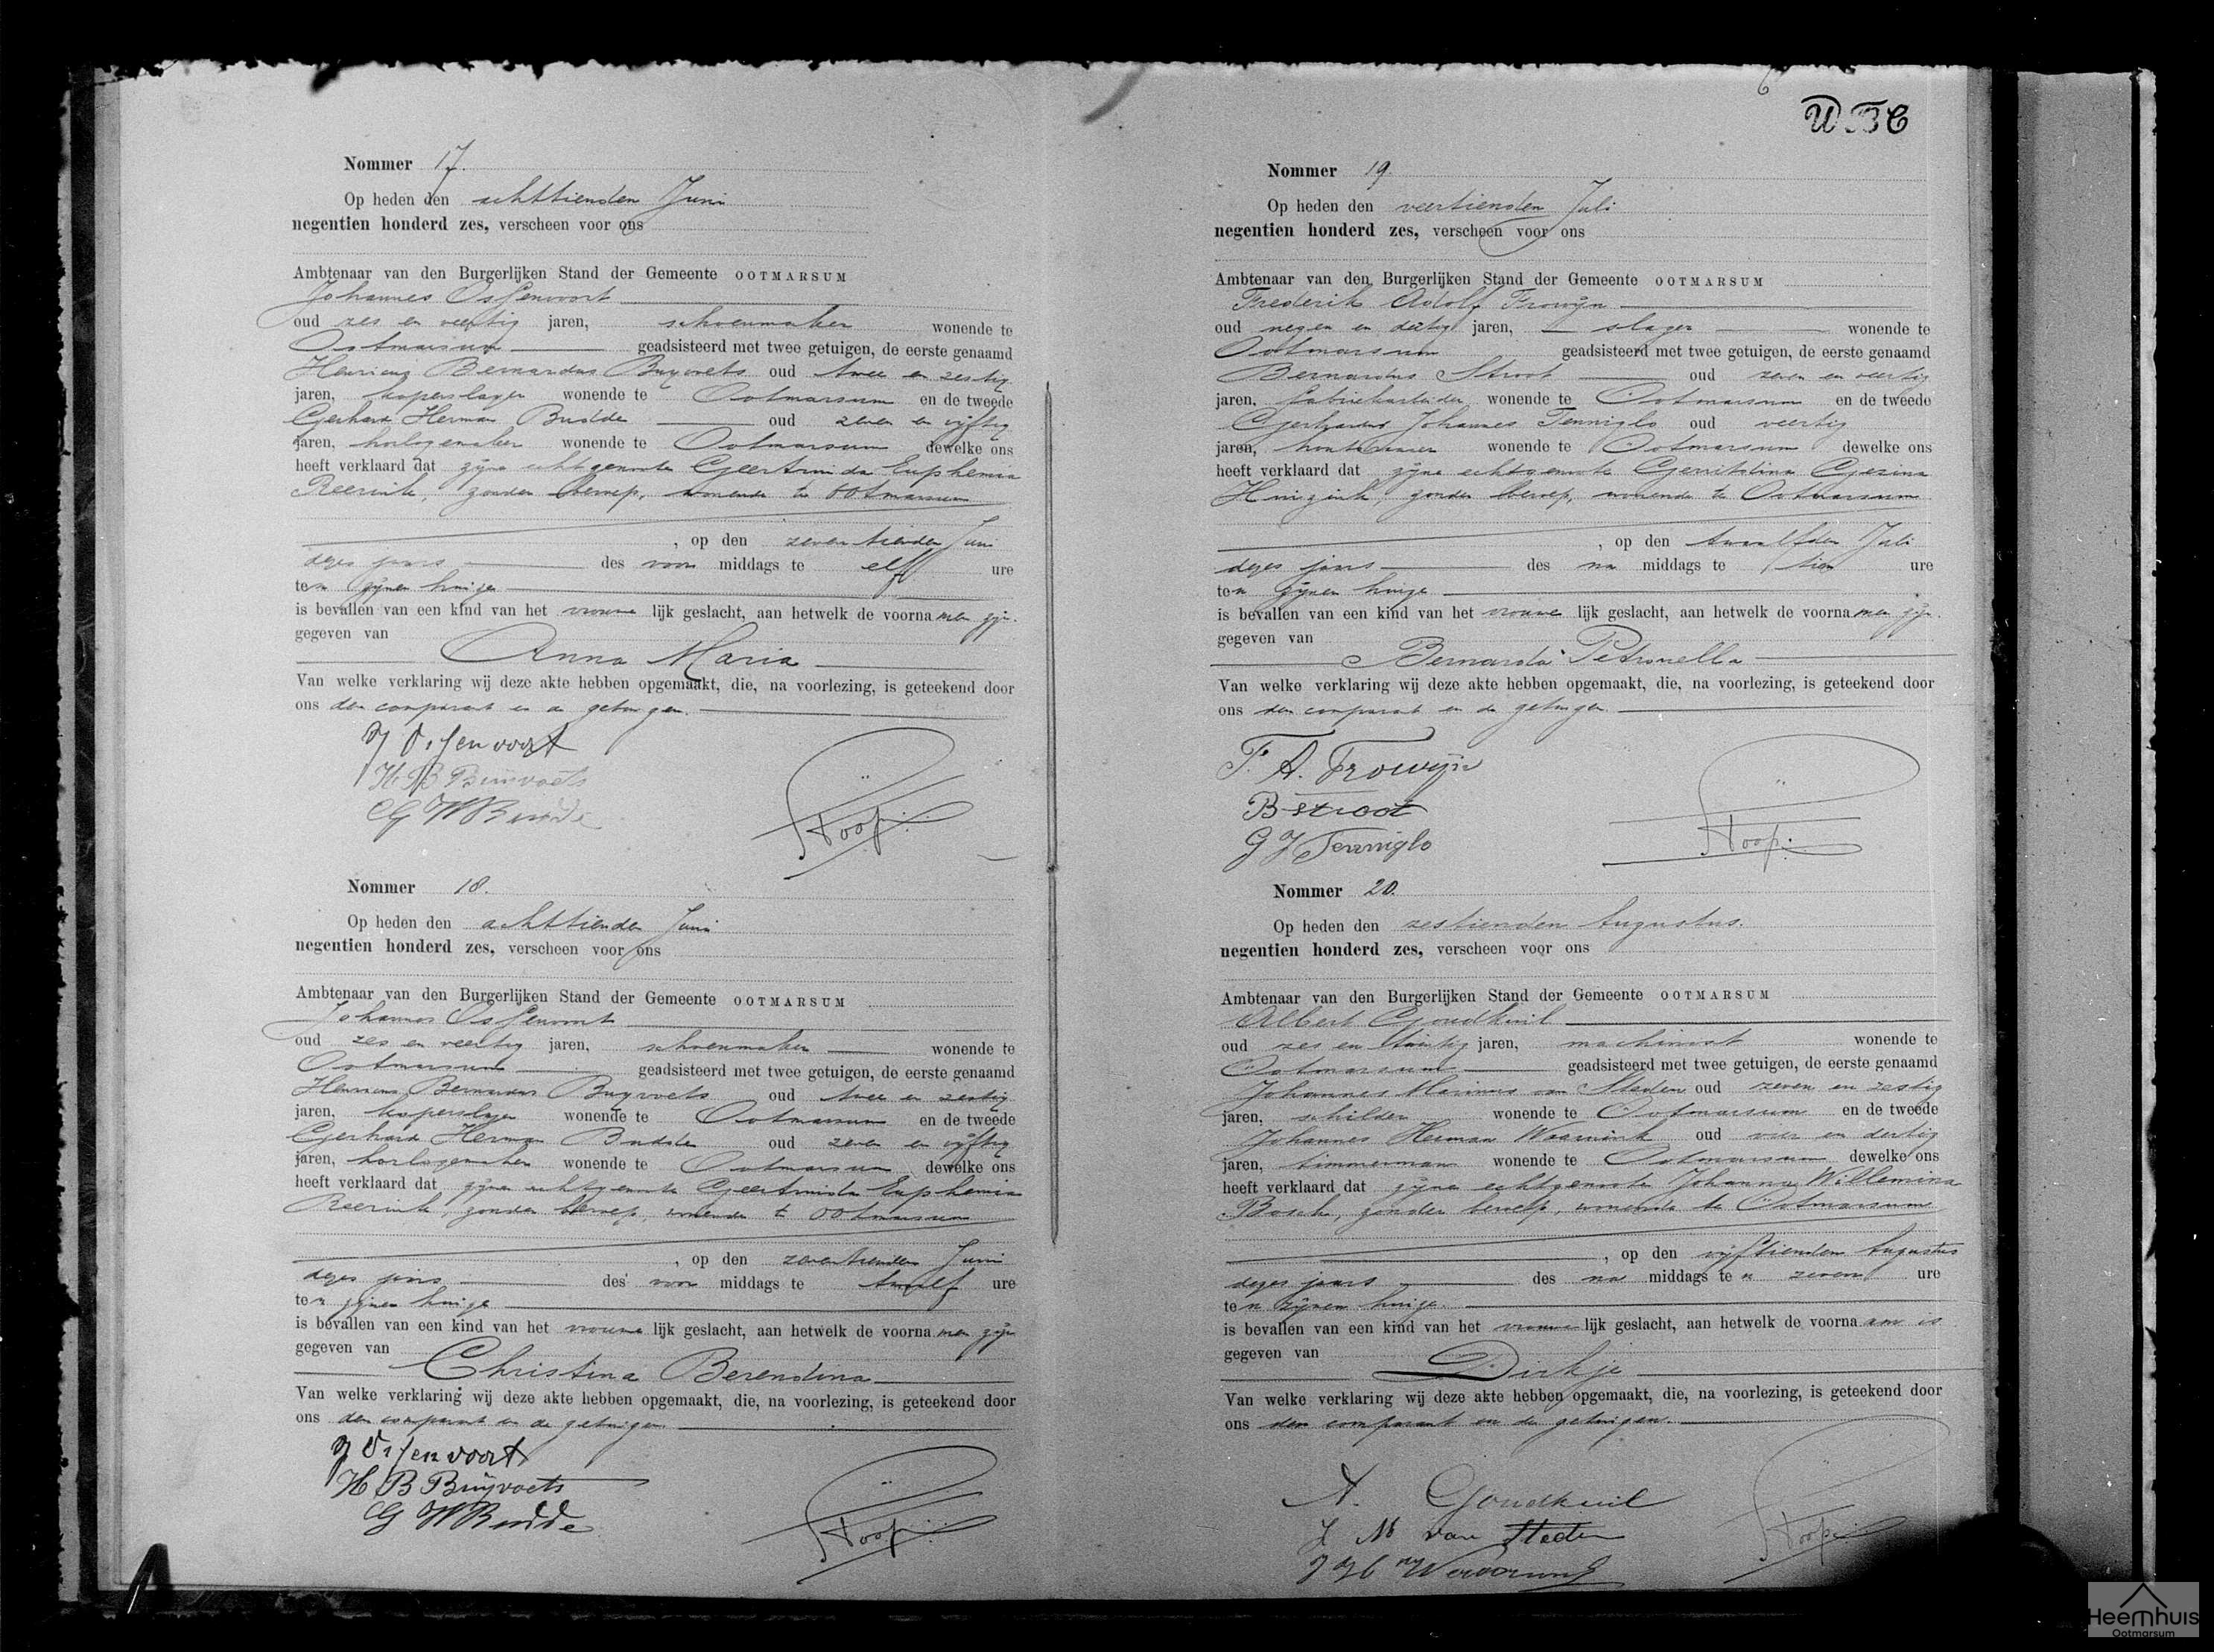 Nommer 17.
Op heden den achttienden Juni
negentien honderd zes, verscheen voor ons
Ambtenaar van den Burgerlijken Stand der Gemeente OOTMARSUM
Johannes Ossenvoort
oud zes en veertig jaren, schoenmaker wonende te
Ootmarsum geadsisteerd met twee getuigen, de eerste genaamd
Henricus Bernardus Buyvoets oud twee en zestig
jaren, koperslager wonende te Ootmarsum en de tweede
Gerhard Herman Budde oud zeven en vijftig
jaren, horlogemaker wonende te Ootmarsum dewelke ons
heeft verklaard dat zijne echtgenoote Geertruida Euphemia
Reerink, zonder beroep, wonende te Ootmarsum
, op den zeventienden Juni
dezes jaars des voor middags te elf ure
ten zijnen huize
is bevallen van een kind van het vrouwe lijk geslacht, aan hetwelk de voorna men zijn
gegeven van
Anna Maria
Van welke verklaring wij deze akte hebben opgemaakt, die, na voorlezing, is geteekend door
ons den comparant en de getuigen.
J Ossenvoort
H B Buijvoets
G H Budde
Nommer 18.
Op heden den achttienden Juni
negentien honderd zes, verscheen voor ons
Ambtenaar van den Burgerlijken Stand der Gemeente OOTMARSUM
Johannes Ossenvoort
oud zes en veertig jaren, schoenmaker wonende te
Ootmarsum geadsisteerd met twee getuigen, de eerste genaamd
Henricus Bernardus Buyvoets oud twee en zestig
jaren, koperslager wonende te Ootmarsum en de tweede
Gerhard Herman Budde oud zeven en vijftig
jaren, horlogemaker wonende te Ootmarsum dewelke ons
heeft verklaard dat zijne echtgenoote Geertruida Euphemia
Reerink, zonder beroep, wonende te Ootmarsum
, op den zeventienden Juni
dezes jaars des voor middags te twaalf ure
ten zijnen huize
is bevallen van een kind van het vrouwe lijk geslacht, aan hetwelk de voorna men zijn
gegeven van
Christina Berendina
Van welke verklaring wij deze akte hebben opgemaakt, die, na voorlezing, is geteekend door
ons den comparant en de getuigen.
J Ossenvoort
H B Buijvoets
G H Budde
Nommer 19.
Op heden den veertienden Juli
negentien honderd zes, verscheen voor ons
Ambtenaar van den Burgerlijken Stand der Gemeente OOTMARSUM
Frederik Adolf Frowijn
oud negen en dertig jaren, slager wonende te
Ootmarsum geadsisteerd met twee getuigen, de eerste genaamd
Bernardus Stroot oud zeven en veertig
jaren, fabriekarbeider wonende te Ootmarsum en de tweede
Gerhardus Johannes Tenniglo oud veertig
jaren, wonende te Ootmarsum dewelke ons
heeft verklaard dat zijne echtgenoote Gerritdina Gezina
Huizink, zonder beroep, wonende te Ootmarsum
, op den twaalfden Juli
dezes jaars des na middags te tien ure
ten zijnen huize
is bevallen van een kind van het vrouwe lijk geslacht, aan hetwelk de voorna men zijn
gegeven van
Bernarda Petronella
Van welke verklaring wij deze akte hebben opgemaakt, die, na voorlezing, is geteekend door
ons den comparant en de getuigen.
F. A. Frowijn
B Stroot
G J Tenniglo
Nommer 20.
Op heden den zestienden Augustus.
negentien honderd zes, verscheen voor ons
Ambtenaar van den Burgerlijken Stand der Gemeente OOTMARSUM
Albert Goudkuil
oud zes en twintig jaren, machinist wonende te
Ootmarsum geadsisteerd met twee getuigen, de eerste genaamd
Johannes Marinus van Steden oud zeven en zestig
jaren, schilder wonende te Ootmarsum en de tweede
Johannes Herman oud vier en dertig
jaren, timmerman wonende te Ootmarsum dewelke ons
heeft verklaard dat zijne echtgenoote Johanna Willemina
Bosch, zonder beroep, wonende te Ootmarsum
, op den vijftienden Augustus
dezes jaars des na middags te zeven ure
ten zijnen huize
is bevallen van een kind van het vrouwe lijk geslacht, aan hetwelk de voorna am is
gegeven van
Dirkje
Van welke verklaring wij deze akte hebben opgemaakt, die, na voorlezing, is geteekend door
ons den comparant en de getuigen.
A. Goudkuil
J M van Steden
J H
Heemhuis
Ootmarsum